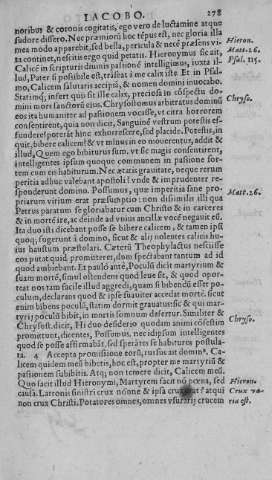 IACOBO. 278
noribus & coronis cogitatis, ego vero de luctamine atque
sudore dissero. Nec præmiorū hoc tēpus est, nec gloria illa
mea modo apparebit, sed bella, pericula & necē præsens vi-
ta continet, ostēdit ergo quid petatis. Hieronymus sic ait,
Calicē in scripturis diuinis passionē intelligimus, iuxta il-
lud, Pater si possibile est, trāseat à me calix iste. Et in Psal-
mo, Calicem salutaris accipiā, & nomen domini inuocabo.
Statimq; infert quis sit ille calix, preciosa in cōspectu do-
mini mors sanctorū eius. Chrysostomus arbitratus dominū
eos ita humaniter ad passionem vocasse, vt citra horrorem
consentirent, quia non dicit, Sanguinē vestrum potestis ef-
fundere?
quit, bibere calicem? &
illud, Quem ego bibiturus sum, vt sic magis
intelligentes ipsum quoque communem in passione for-
tem cum eis habiturum. Nec ætatis grauitate, neque rerum
peritia adhuc valebant apostoli, vnde & imprudenter re-
spondentur domino. Possumus, quæ imperitia sane pro-
priarum virium erat præsumptio: non dissimilis illi qua
Petrus paratum se gloriabatur cum Christo & in carcerem
& in mortē ire, ac deinde ad vnius ancillæ vocē negauit eū.
Ita duo isti dicebant posse se bibere calicem, & tamen ipsi
quoq; fugerunt à domino, sicut &
ius haustum præstolari. Cæterū Theophylactus nescisse
eos putat quid promitterent, dum spectabant tantum ad id
quod ambiebant. Et paulò antè, Poculū dicit martyrium &
suam mortē, simul ostendens quod leue sit, & quod oporte-
at nos tam facile illud aggredi, quam si bibendū esset po-
culum, declarans quod & ipse suauiter accedat morti. sicut
enim bibens poculū, statim dormit grauatus: sic & qui mar-
tyrij poculū bibit, in mortis somnum defertur. Similiter &
Chrysost. dicit, Hi duo desiderio quodam animi cōfestim
promittunt, dicentes, Possumus, necidipsum intelligentes
quod se posse affirmabāt, sed sperātes se habituros postula-
ta. 4 Accepta promissione eorū, rursus ait dominꝰ. Ca-
licem quidem meū bibetis, hoc est, propter me martyriū &
passionem subibitis. Atq; non temere dicit, Calicem meū.
Quo facit illud Hieronymi, Martyrem facit nō pœna, sed
causa. Latronis sinistri crux nōne & ipsa
non crux Christi. Potatores omnes, omnes vsurarij crucem
Hieron.
Matt. 26.
Psal. 115.
Chryso.
Matt. 26.
Chryso.
Hieron.
Crux va-
ria est.